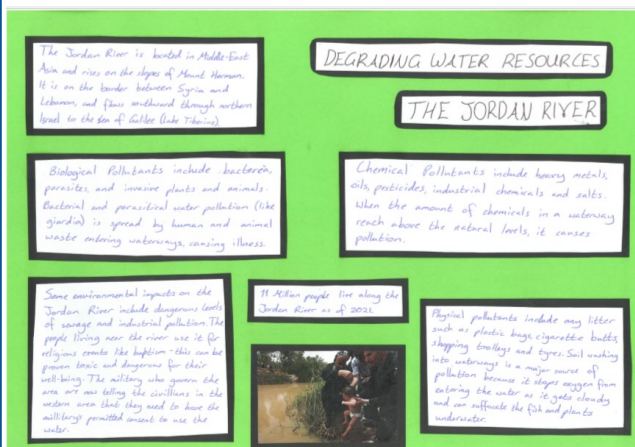 DEGRADING WATER RESOURCES
THE JORDAN RIVER
The Jordan River is located in Middle-East
Asia and rises on the slopes of Mount Hermon.
It is on the border between Syria and
Lebanon, and flows southward through northern
Israel to the Sea of Galilee (Lake Tiberias).
Biological Pollutants include bacteria,
parasites, and invasive plants and animals.
Bacterial and parasitical water pollution (like
giardia) is spread by human and animal
waste entering waterways, causing illness.
Chemical Pollutants include heavy metals,
oils, pesticides, industrial chemicals and salts.
When the amount of chemicals in a waterway
reach above the natural levels, it causes
pollution.
Some environmental impacts on the
Jordan River include dangerous levels
of sewage and industrial pollution. The
people living near the river use it for
religious events like baptism - this can be
proven toxic and dangerous for their
well-being. The military who govern the
area are now telling the civillians in the
western area that they need to have the
militarys permitted consent to use the
water.
11 Million people live along the
Jordan River as of 2022
Physical pollutants include any litter
such as plastic bags, cigarette butts,
shopping trolleys and tyres. Soil washing
into waterways is a major source of
pollution because it stops oxygen from
entering the water as it gets cloudy
and can suffocate the fish and plants
underwater.